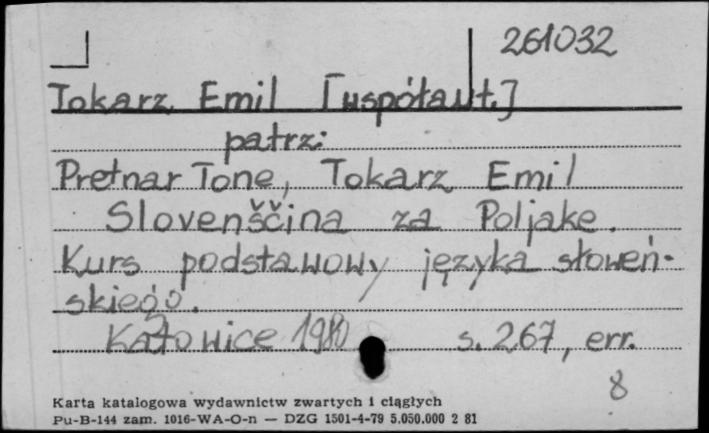 261032
Tokarz Emil [współaut.]
patrz:
Pretnar Tone, Tokarz Emil
Slovenščina za Poljake.
Kurs podstawowy języka słoweń-
skiego.
Katowice 1980 s. 267, err.
8
Karta katalogowa wydawnictw zwartych i ciągłych
Pu-B-144 zam. 1016-WA-O-n — DZG 1501-4-79 5.050.000 2 81